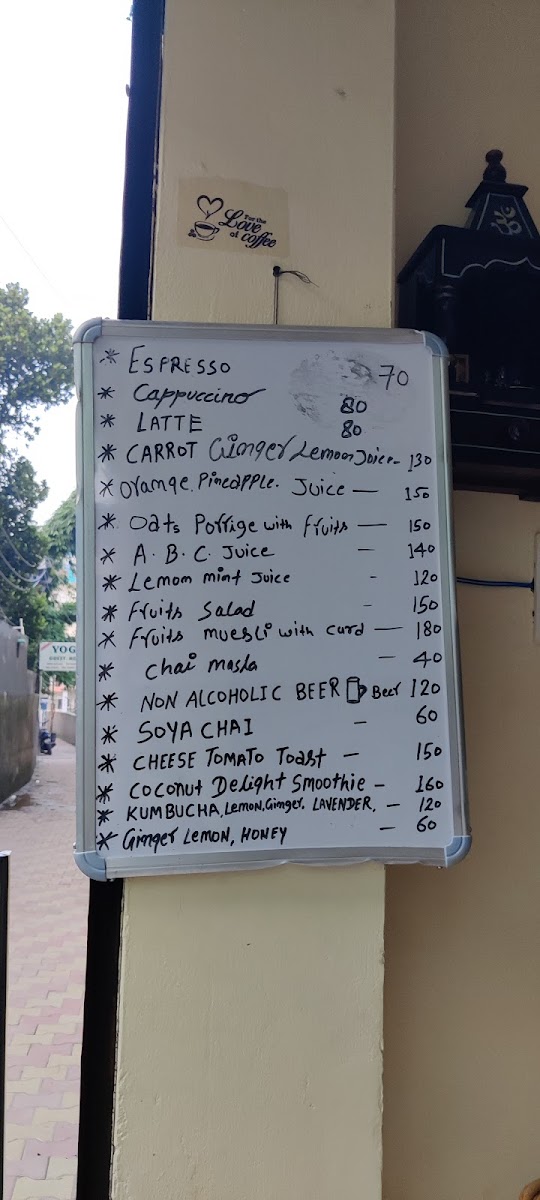 For the
Love
of coffee
* ESPRESSO 70
* Cappuccino 80
* LATTE 80
* CARROT Ginger Lemon Juice - 130
* Orange. Pineapple. Juice — 150
* Oats Porrige with fruits — 150
* A. B. C. Juice - 140
* Lemon mint Juice - 120
* Fruits Salad - 150
* Fruits muesli with curd — 180
* Chai masla - 40
* NON ALCOHOLIC BEER Beer 120
* SOYA CHAI - 60
* CHEESE TOMATO Toast - 150
* COCONUT Delight Smoothie - 160
* KUMBUCHA, Lemon, Ginger. LAVENDER, - 120
* Ginger LEMON, HONEY - 60
YOG